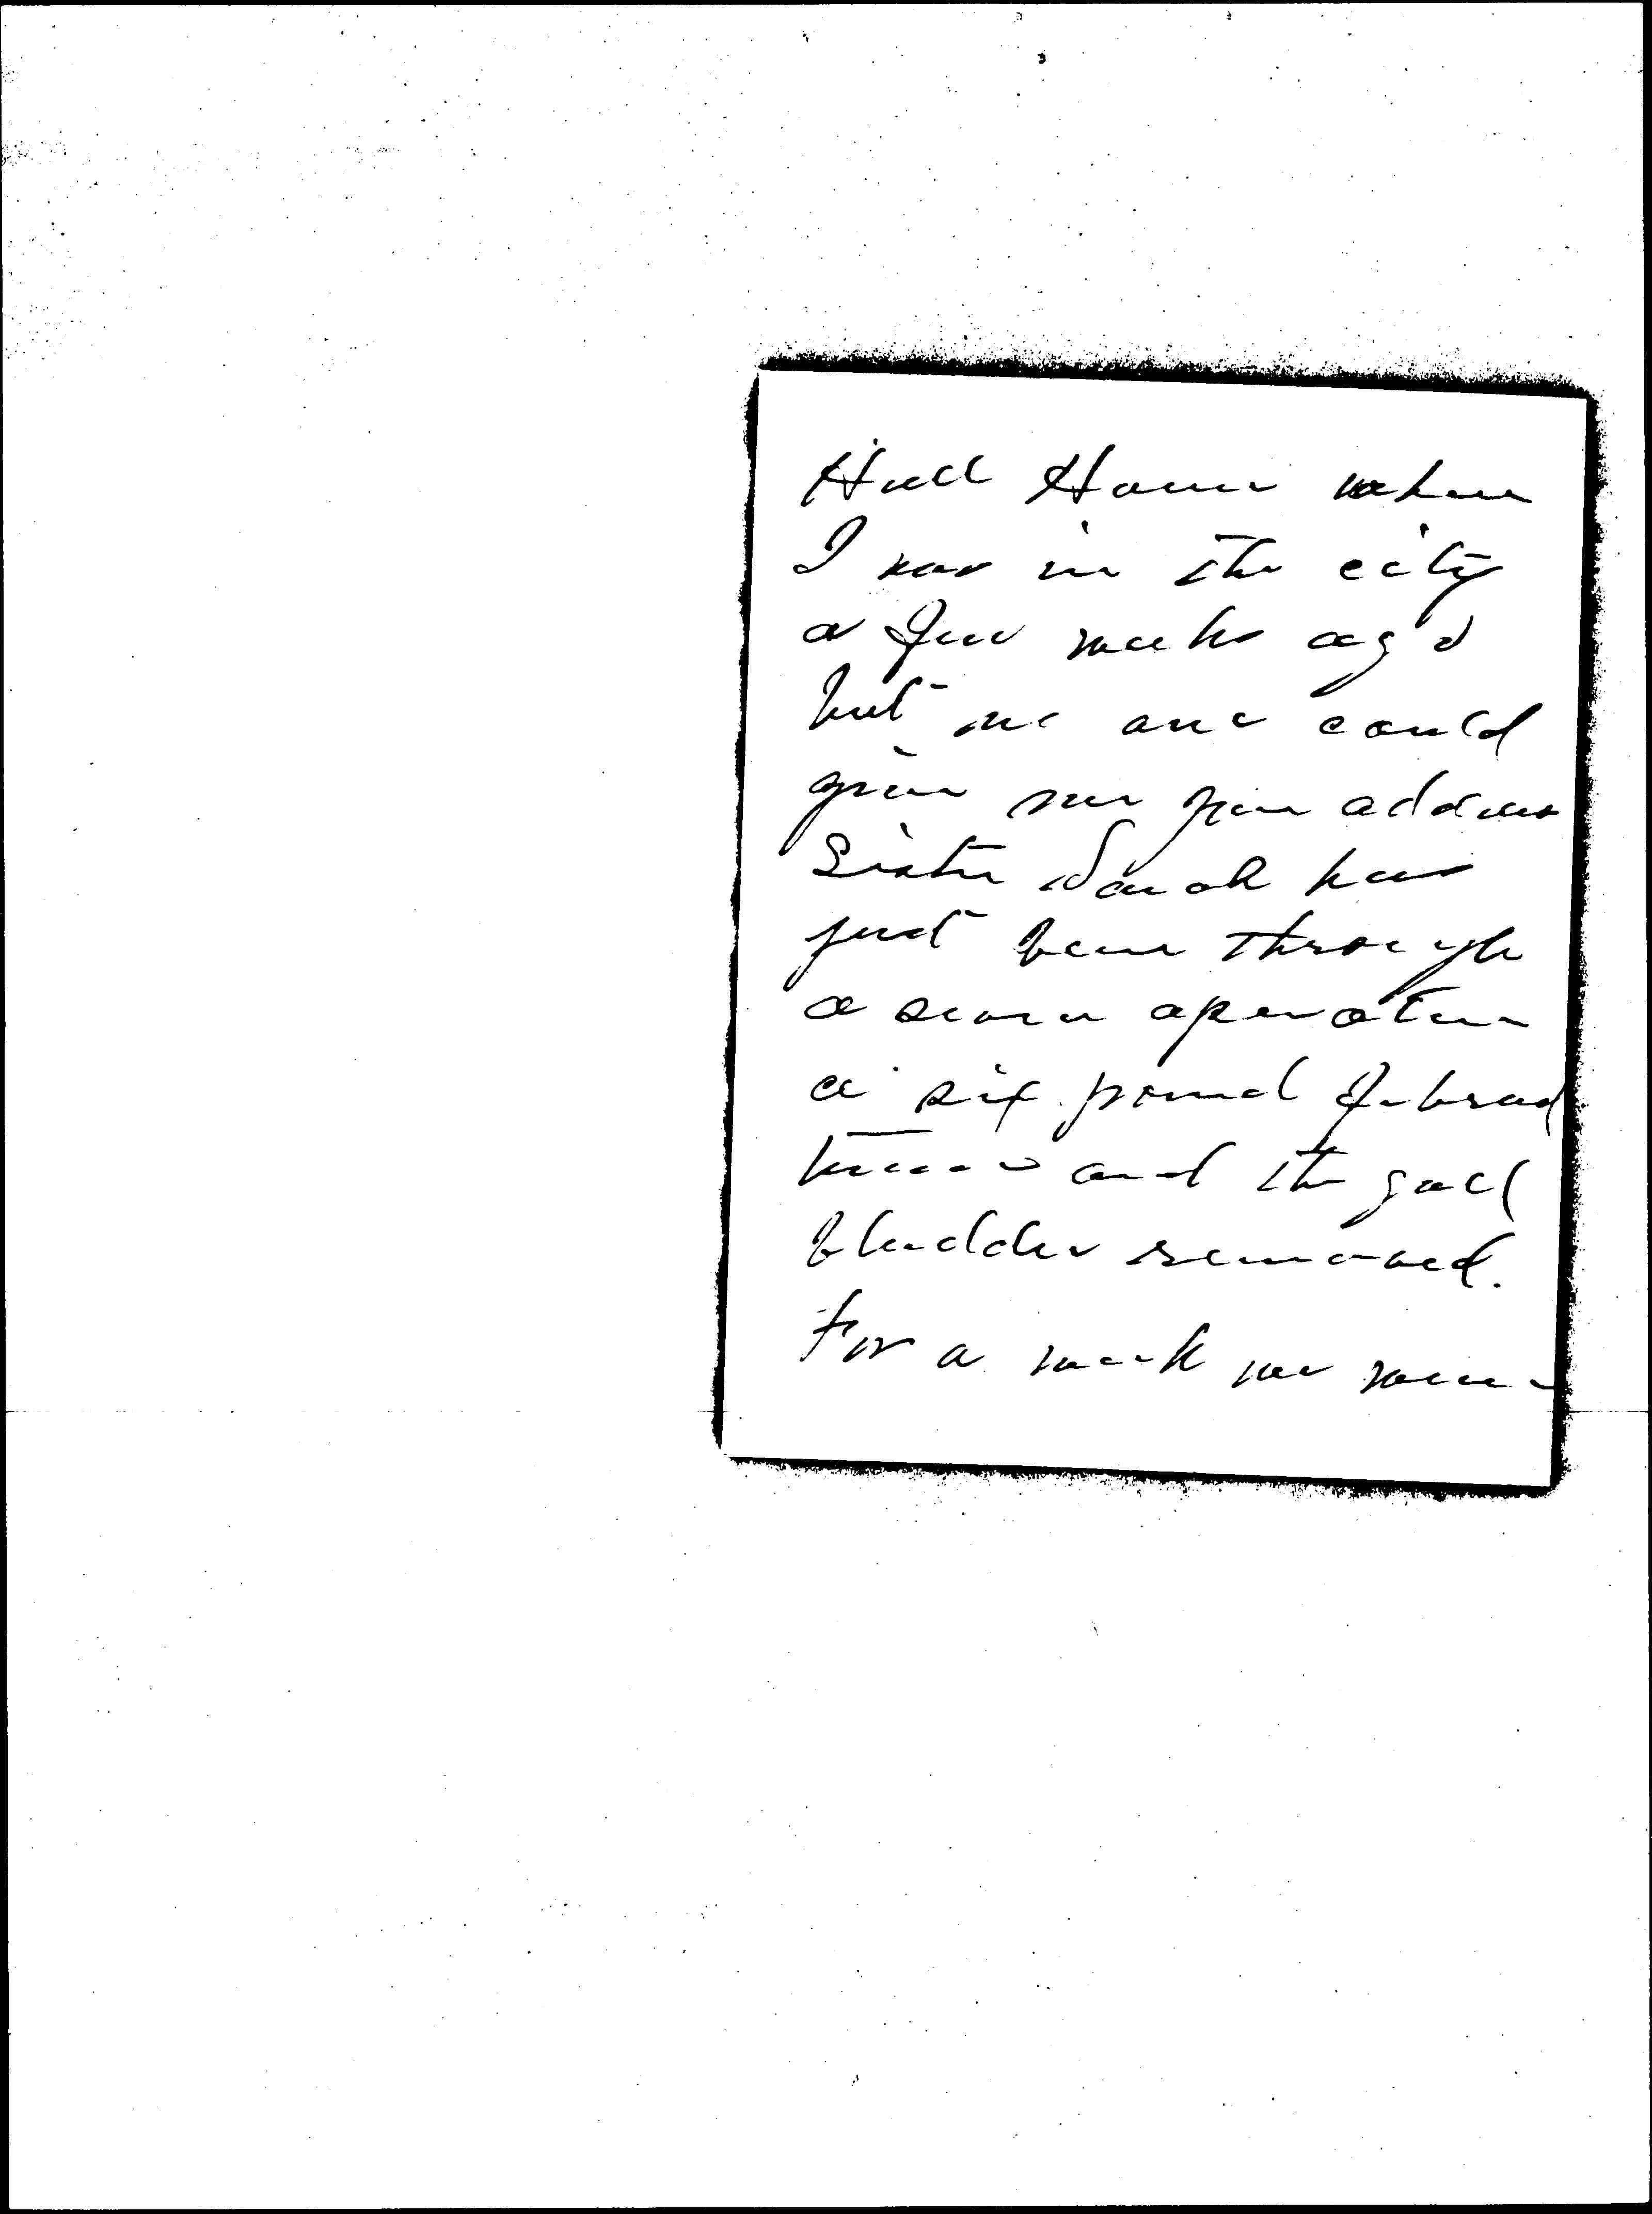 Hull House when
I was in the city
a few weeks ago
but no one could
give me your address
Sister Sarah has
just been through
a severe operation
a six pound fibroid
tumor and the gall
bladder removed.
For a week we were